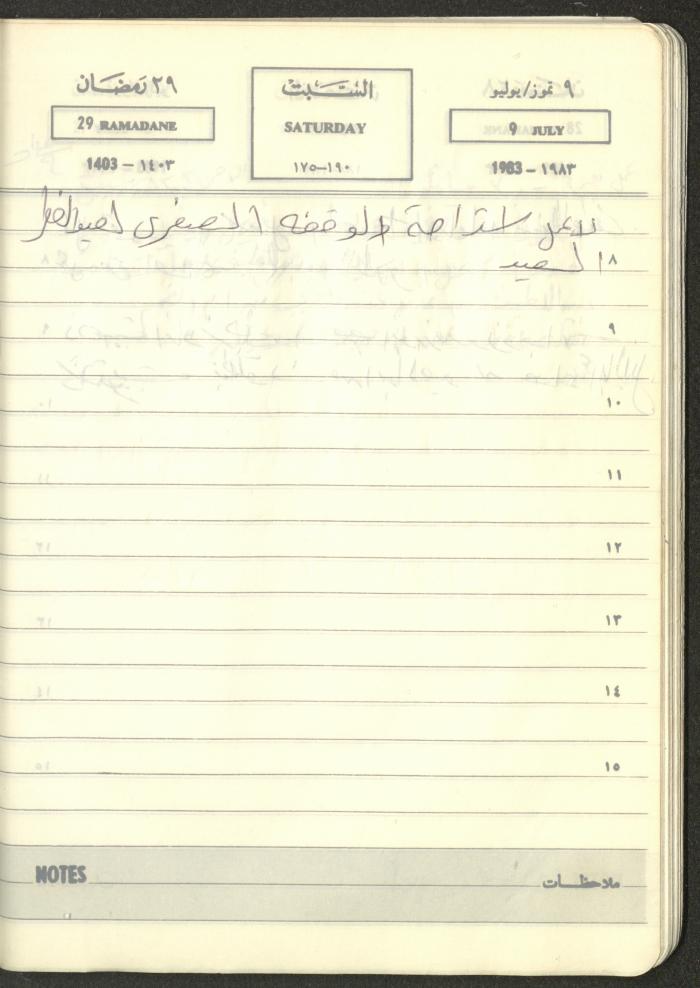 ٩ تموز/يوليو
السبت
٢٩ رمضان
9 JULY
SATURDAY
29 RAMADANE
1983 – ١٩٨٣
١٧٥–١٩٠
1403 – ١٤٠٣
استراحة الوقفه الصغرى لعيد الفطر
السعيد
٨
٩
١٠
١١
١٢
١٣
١٤
١٥
NOTES
ملاحظات